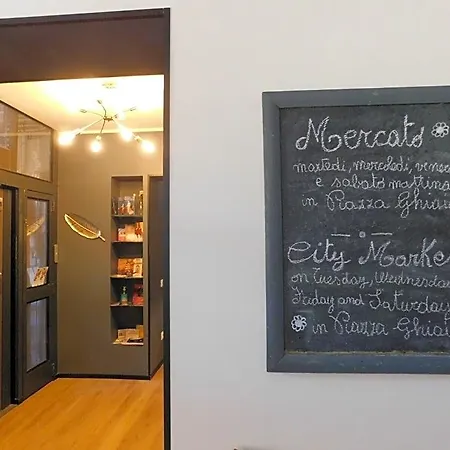 Mercato
martedì, mercoledì, vener
e sabato mattina
in Piazza Ghiai
City Marke
on Tuesday, Wednesday
Friday and Saturday
in Piazza Ghiai